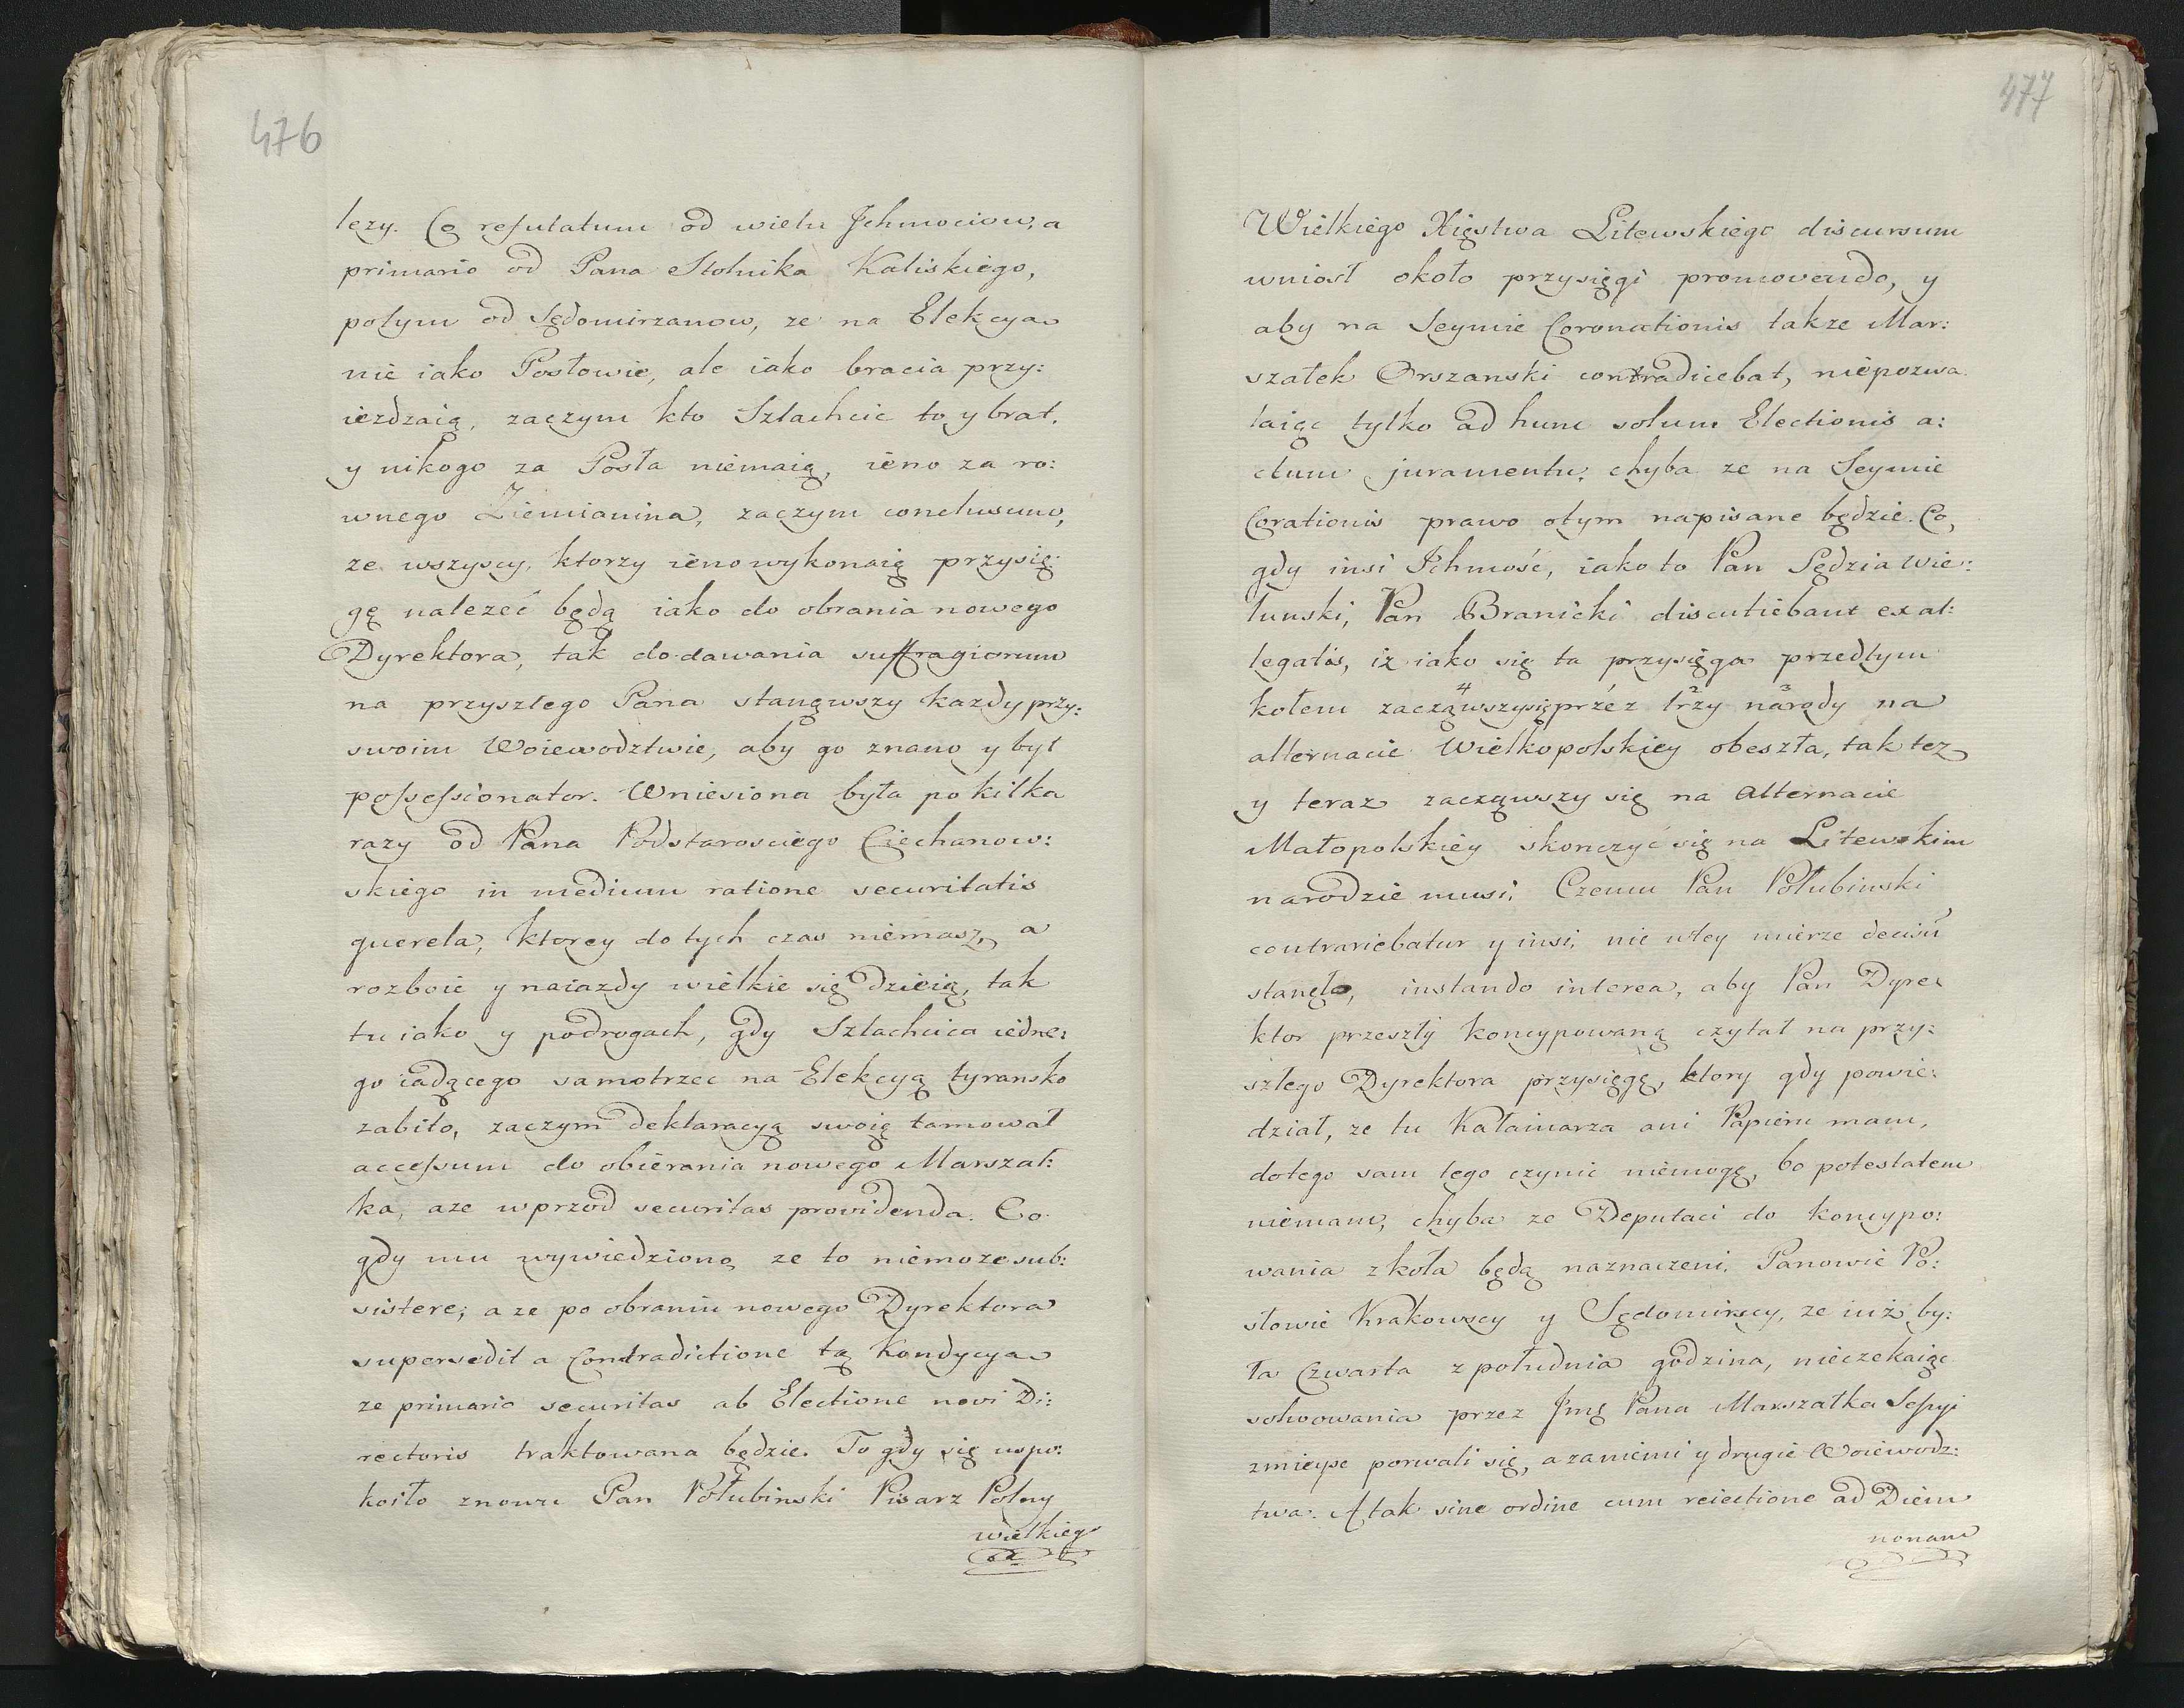 476
lezy. Co refutatum od wielu Jchmociow, a
primario od Pana Stolnika Kaliskiego,
potym od Sędomirzanow, ze na Elekcya
nie iako Posłowie, ale iako bracia przy:
iezdzaią, zaczym kto Szlachcic to y brat,
y nikogo za Posła niemaią, ieno za ro:
wnego Ziemianina, zaczym conclusum,
ze wszyscy, ktorzy ieno wykonaią przysię:
gę nalezeć będą iako do obrania nowego
Dyrektora, tak do dawania suffragiorum
na przyszłego Pana stanąwszy kazdy przy:
swoim Woiewodztwie, aby go znano y był
possessionator. Wniesiona była po kilka
razy od Pana Podstarosciego Ciechanow:
skiego in medium ratione securitatis
querela, ktorey do tych czas niemasz, a
rozboie y naiazdy wielkie się dzieią, tak
tu iako y podrogach, gdy Szlachcica iedne:
go iadącego samotrzec na Elekcyą tyransko
zabito, zaczym deklaracyą swoię tamował
accessum do obierania nowego Marszał:
ka, aze wprzod securitas providenda. Co
gdy mu wywiedziono, ze to niemoze sub:
sistere; a ze po obraniu nowego Dyrektora
supersedit a Contradictione tą Kondycya
ze primario securitas ab Electione novi Di:
rectoris traktowana będzie. To gdy się uspo:
koiło znowu Pan Połubinski Pisarz Polny
wielkiego
477
Wielkiego Xięstwa Litewskiego discursum
wniosł około przysięgi promovendo, y
aby na Seymie Coronationis takze Mar:
szałek Orszanski contradicebat, niepozwa
laiąc tylko ad hunc solum Electionis a:
ctum juramentu, chyba ze na Seymie
Corationis prawo otym napisane będzie. Co,
gdy insi Ichmość, iako to Pan Sędzia Wie:
lunski, Pan Branicki discutiebant ex al:
legatis, iz iako się ta przysięga przedtym
kołem zacząwszy 4 się przez trzy 2 narody 3 na
alternacie Wielkopolskiey obeszła, tak tez
y teraz zacząwszy się na alternacie
Małopolskiey skonczyć się na Litewskim
narodzie musi. Czemu Pan Połubinski
contrariebatur y insi, nie wtey mierze decisu
stanęło, instando interea, aby Pan Dyre:
ktor przeszły koncypowaną czytał na przy:
szłego Dyrektora przysięgę, ktory gdy powie:
dział, ze tu Kałamarza ani Papieru mam,
dotego sam tego czynic niemogę, bo potestatem
niemam, chyba ze Deputaci do koncypo:
wania z koła będą naznaczeni. Panowie Po:
słowie Krakowscy y Sędomirscy, ze iuż by:
ła Czwarta z południa godzina, nieczekaiąc
solwowania przez Jmę Pana Marszałka Sessyi
zmieysc porwali się, a zaniemi y drugie Woiewodz:
twa. A tak sine ordine cum reiectione ad Diem
nonam